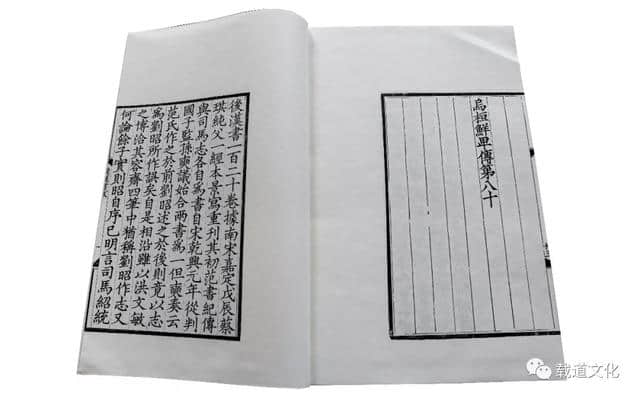 烏桓鮮卑傳第八十
後漢書一百二十卷據南宋嘉定戊辰蔡
琪純父一經本景寫重刊其初范書紀傳
與司馬志各自爲書自宋乾興元年從判
國子監孫奭議始合兩書爲一但奭奏云
范氏作之於前劉昭述之於後則竟以志
爲劉昭所作誤矣自是相沿雖以洪文敏
之博洽其容齋四筆中猶稱劉昭作志又
何論餘子實則昭自序已明言司馬紹統
载道文化